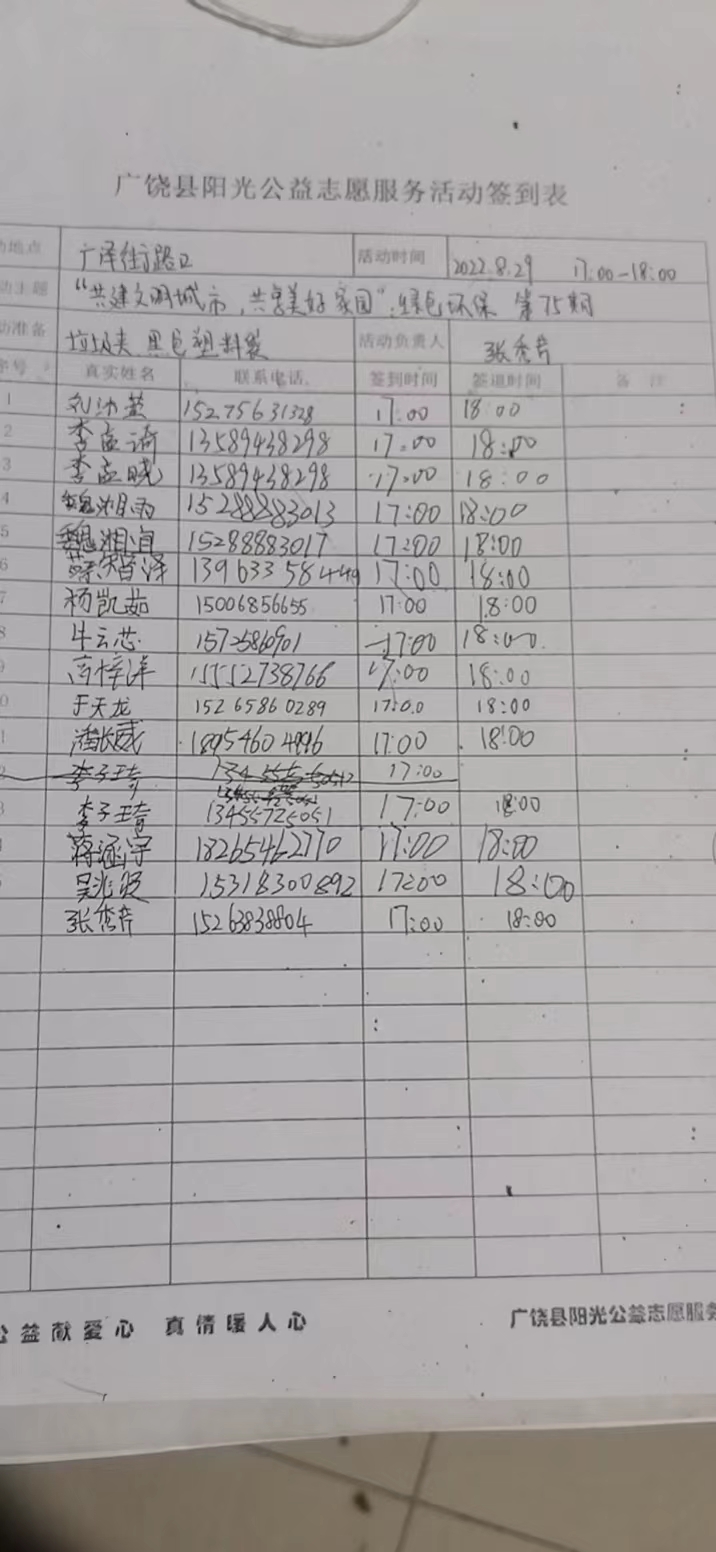 广饶县阳光公益志愿服务活动签到表
动地点 广泽街路口 活动时间 2022.8.29 17:00-18:00
动主题 “共建文明城市,共享美好家园”:绿色环保 第75期
动准备 垃圾夹 黑色塑料袋 活动负责人 张秀芹
序号 真实姓名 联系电话 签到时间 签退时间 备注
1 15275631328 17:00 18:00
2 李孟 13589438298 17:00 18:00
3 李孟晓 13589438298 17:00 18:00
4 魏湘雨 15288883013 17:00 18:00
5 魏湘 15288883017 17:00 18:00
6 泽 13963358449 17:00 18:00
7 杨凯茹 15006856655 17:00 18:00
8 牛云芯 15725860901 17:00 18:00
9 高梓洋 15552738766 17:00 18:00
0 于天龙 15265860289 17:00 18:00
1 潘长威 18954604996 17:00 18:00
2 李子琦 17:00
3 李子琦 13455725051 17:00 18:00
蒋涵宇 18265462770 17:00 18:00
吴兆贤 15318300892 17:00 18:00
张秀芹 15263838804 17:00 18:00
公益献爱心 真情暖人心 广饶县阳光公益志愿服务